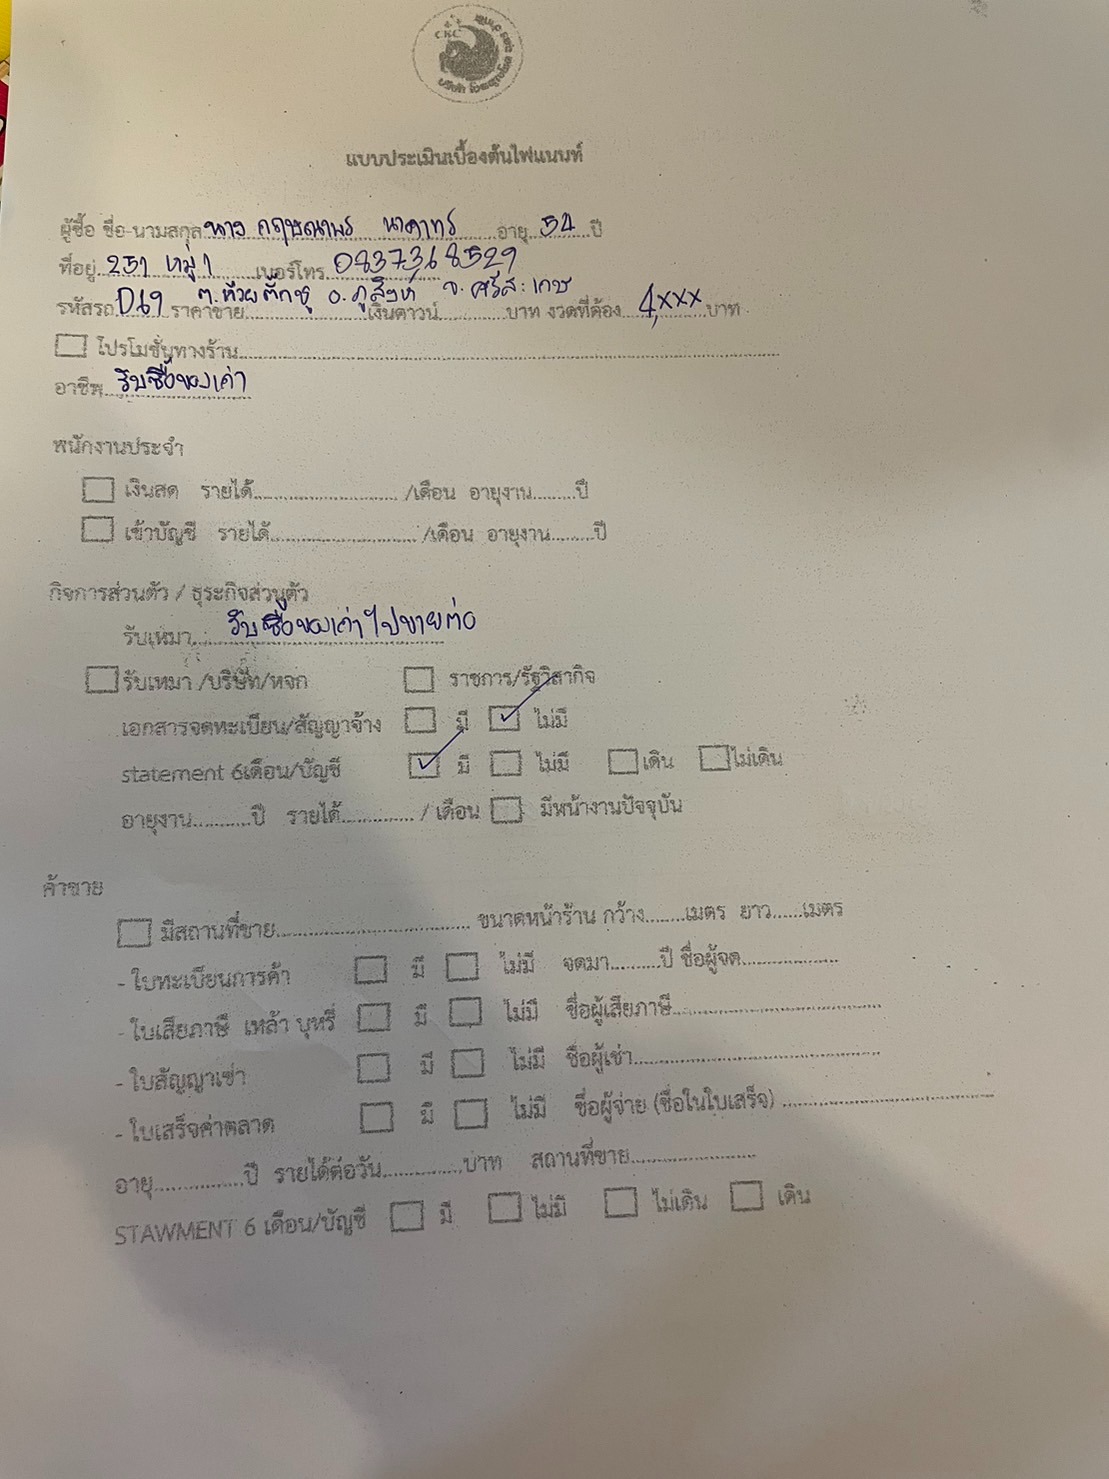 CKC
แบบประเมินเบื้องต้นไฟแนนท์
ผู้ซื้อ ชื่อ-นามสกุล นาง กฤษณาพร นาคาทร อายุ 54 ปี
ที่อยู่ 251 หมู่ 1 เบอร์โทร 0837368529
ต.ห้วยติ๊กชู อ.ภูสิงห์ จ.ศรีสะเกษ
รหัสรถ D69 ราคาขาย.................... เงินดาวน์............บาท งวดที่ต้อง 4,xxx บาท
โปรโมชั่นทางร้าน....................
อาชีพ รับซื้อของเก่า
พนักงานประจำ
เงินสด รายได้.................... /เดือน อายุงาน.........ปี
เข้าบัญชี รายได้.................... /เดือน อายุงาน.........ปี
กิจการส่วนตัว / ธุระกิจส่วนตัว
รับเหมา รับซื้อของเก่าไปขายต่อ
รับเหมา /บริษัท/หจก ราชการ/รัฐวิสากิจ
เอกสารจดทะเบียน/สัญญาจ้าง มี ✓ ไม่มี
statement 6เดือน/บัญชี ✓ มี ไม่มี เดิน ไม่เดิน
อายุงาน............ปี รายได้............... / เดือน มีหน้างานปัจจุบัน
ค้าขาย
มีสถานที่ขาย.................... ขนาดหน้าร้าน กว้าง........เมตร ยาว......เมตร
- ใบทะเบียนการค้า มี ไม่มี จดมา..........ปี ชื่อผู้จด....................
- ใบเสียภาษี เหล้า บุหรี่ มี ไม่มี ชื่อผู้เสียภาษี....................
- ใบสัญญาเช่า มี ไม่มี ชื่อผู้เช่า....................
- ใบเสร็จค่าตลาด มี ไม่มี ชื่อผู้จ่าย (ชื่อในใบเสร็จ) ....................
อายุ................ปี รายได้ต่อวัน..............บาท สถานที่ขาย....................
STAWMENT 6 เดือน/บัญชี มี ไม่มี ไม่เดิน เดิน